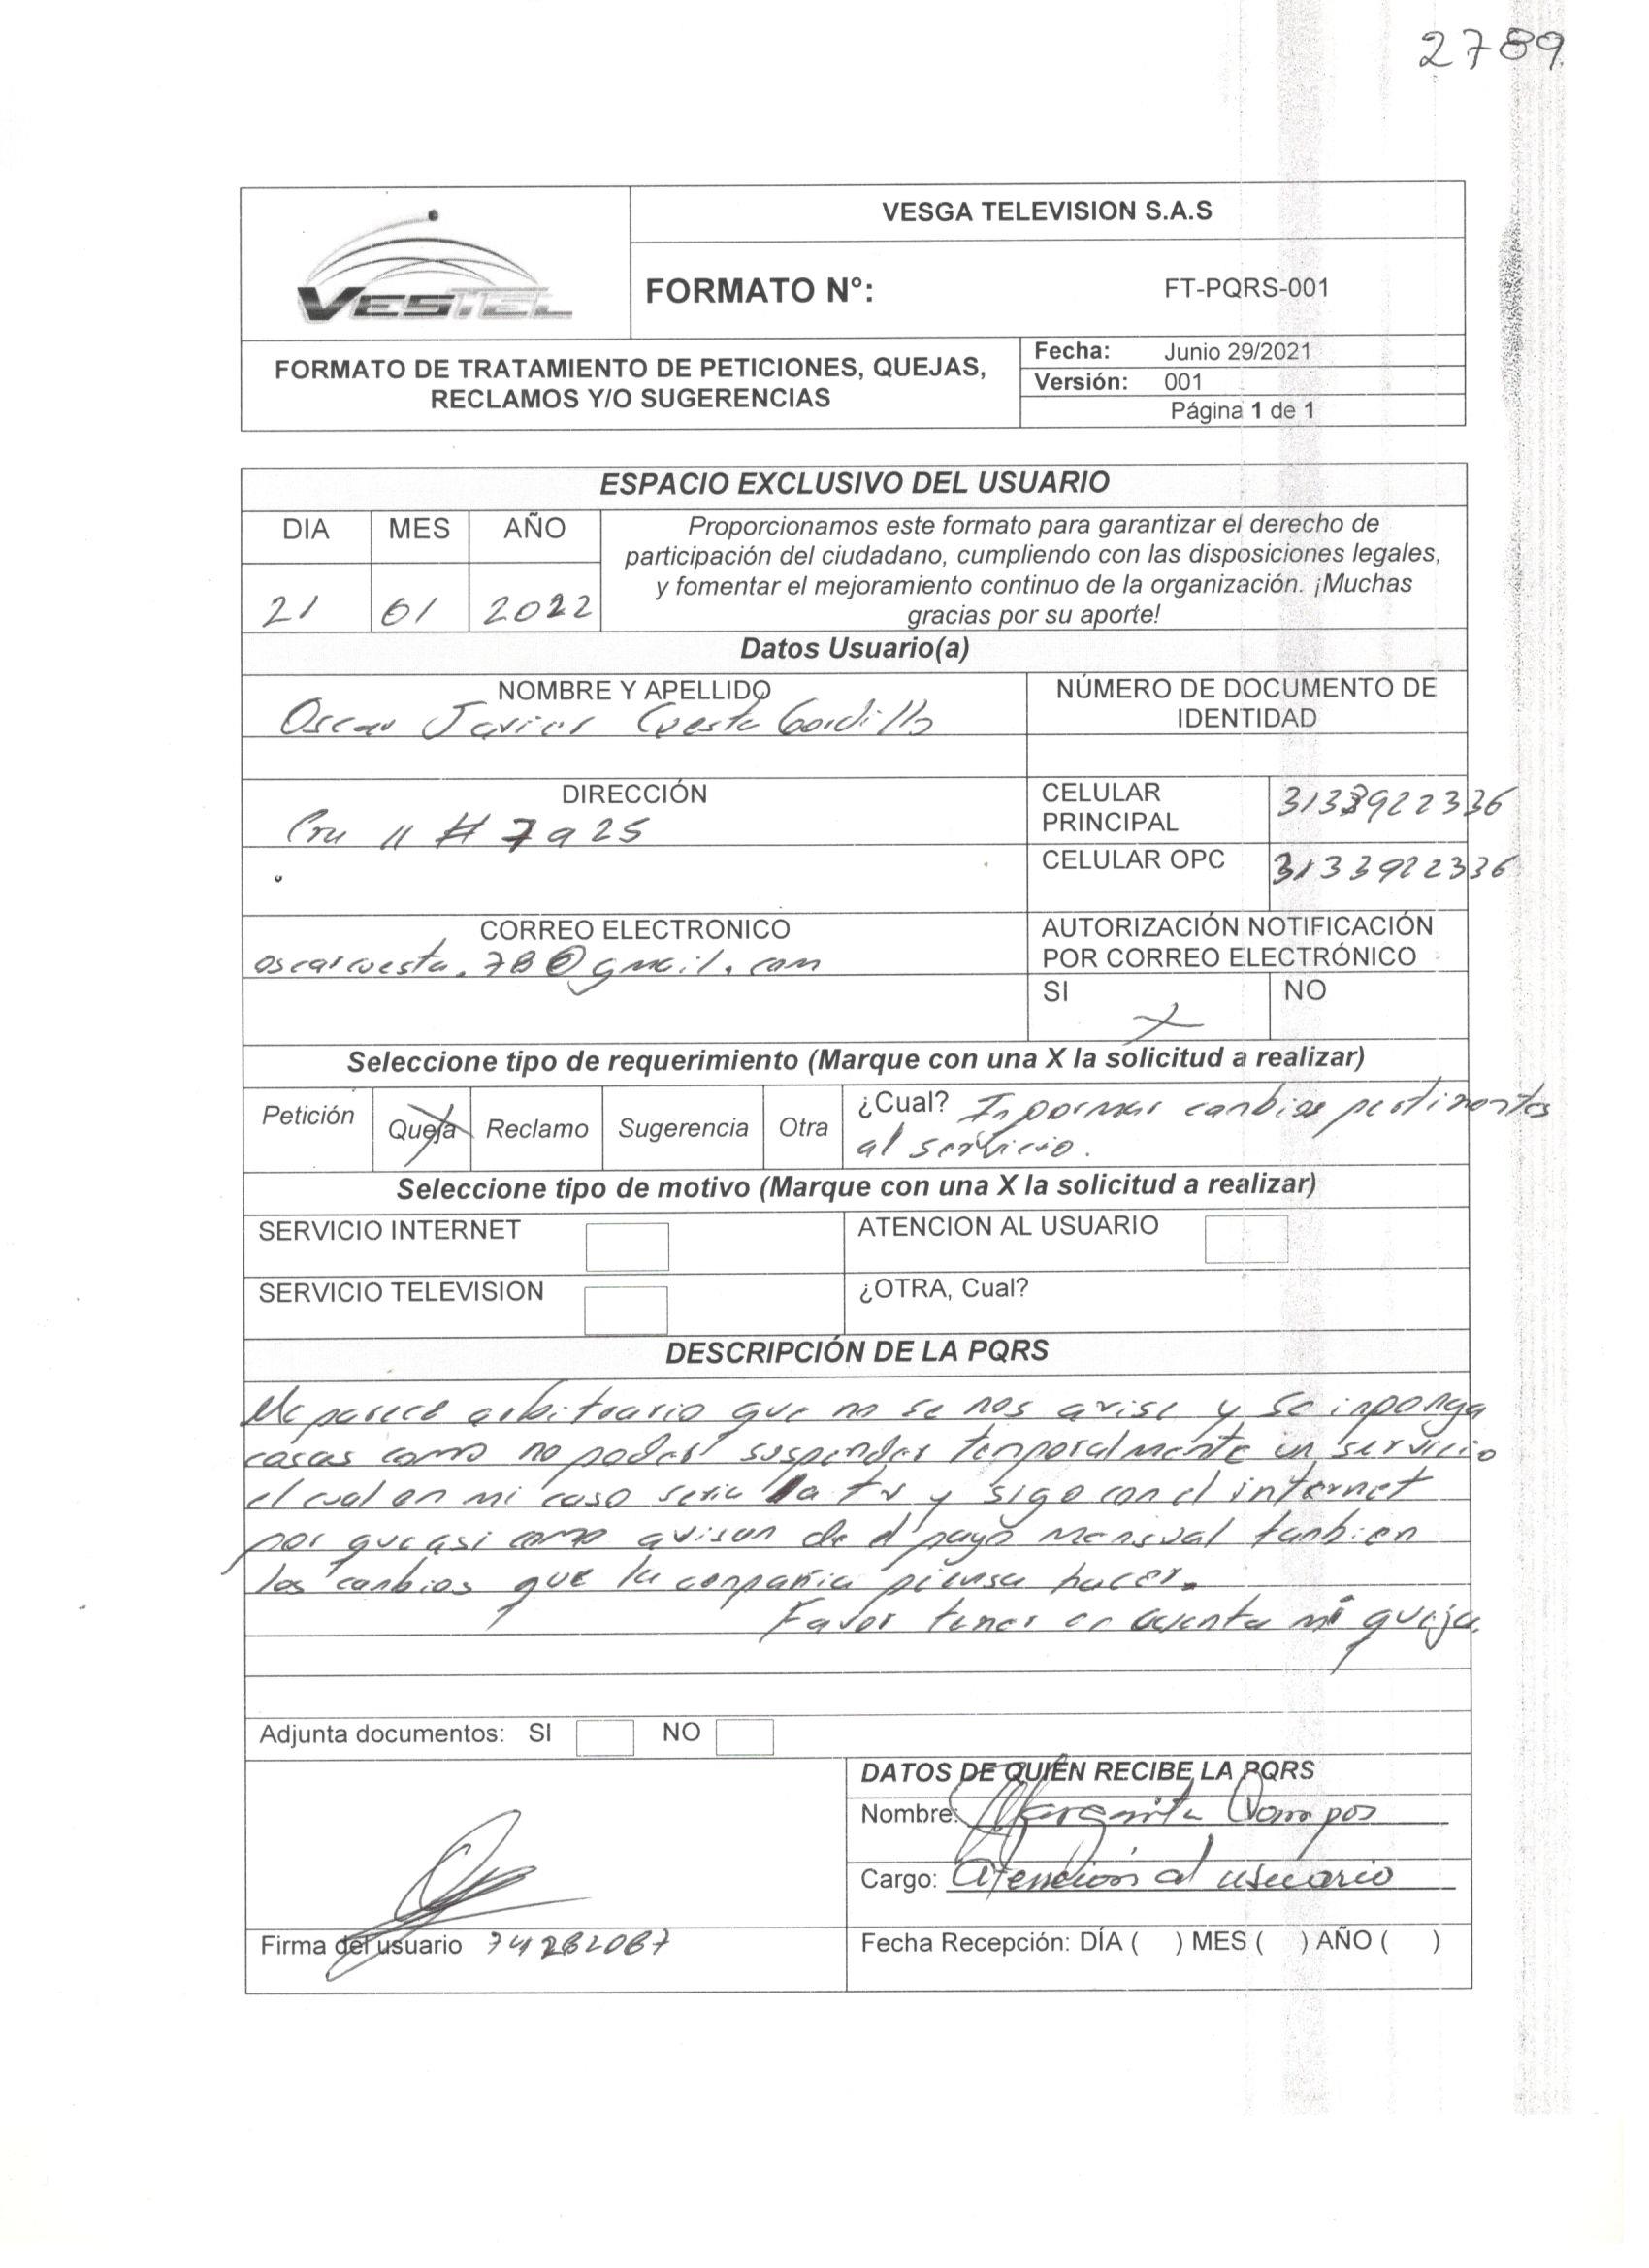 2789
VESTEL
VESGA TELEVISION S.A.S
FORMATO N°: FT-PQRS-001
FORMATO DE TRATAMIENTO DE PETICIONES, QUEJAS,
RECLAMOS Y/O SUGERENCIAS
Fecha: Junio 29/2021
Versión: 001
Página 1 de 1
ESPACIO EXCLUSIVO DEL USUARIO
DIA MES AÑO
21 01 2022
Proporcionamos este formato para garantizar el derecho de
participación del ciudadano, cumpliendo con las disposiciones legales,
y fomentar el mejoramiento continuo de la organización. ¡Muchas
gracias por su aporte!
Datos Usuario(a)
NOMBRE Y APELLIDO
Oscar Javier Cuesta Gordillo
NÚMERO DE DOCUMENTO DE
IDENTIDAD
DIRECCIÓN
Cra 11 # 7a 25
CELULAR
PRINCIPAL
3133922336
CELULAR OPC
3133922336
CORREO ELECTRONICO
oscarcuesta.78@gmail.com
AUTORIZACIÓN NOTIFICACIÓN
POR CORREO ELECTRÓNICO
SI X NO
Seleccione tipo de requerimiento (Marque con una X la solicitud a realizar)
Petición Queja Reclamo Sugerencia Otra
¿Cual? Informar cambios pertinentes
al servicio.
Seleccione tipo de motivo (Marque con una X la solicitud a realizar)
SERVICIO INTERNET
ATENCION AL USUARIO
SERVICIO TELEVISION
¿OTRA, Cual?
DESCRIPCIÓN DE LA PQRS
Me parece arbitrario que no se nos avise y se inponga
cosas como no poder suspender temporalmente un servicio
el cual en mi caso seria la tv y sigo con el internet
por que asi como avisan de el pago mensual tanbien
los canbios que la conpañia piensa hacer.
Favor tener en cuenta mi queja.
Adjunta documentos: SI NO
DATOS DE QUIÉN RECIBE LA PQRS
Nombre: Margarita Campos
Cargo: Atención al usuario
Firma del usuario 74282087
Fecha Recepción: DÍA ( ) MES ( ) AÑO ( )